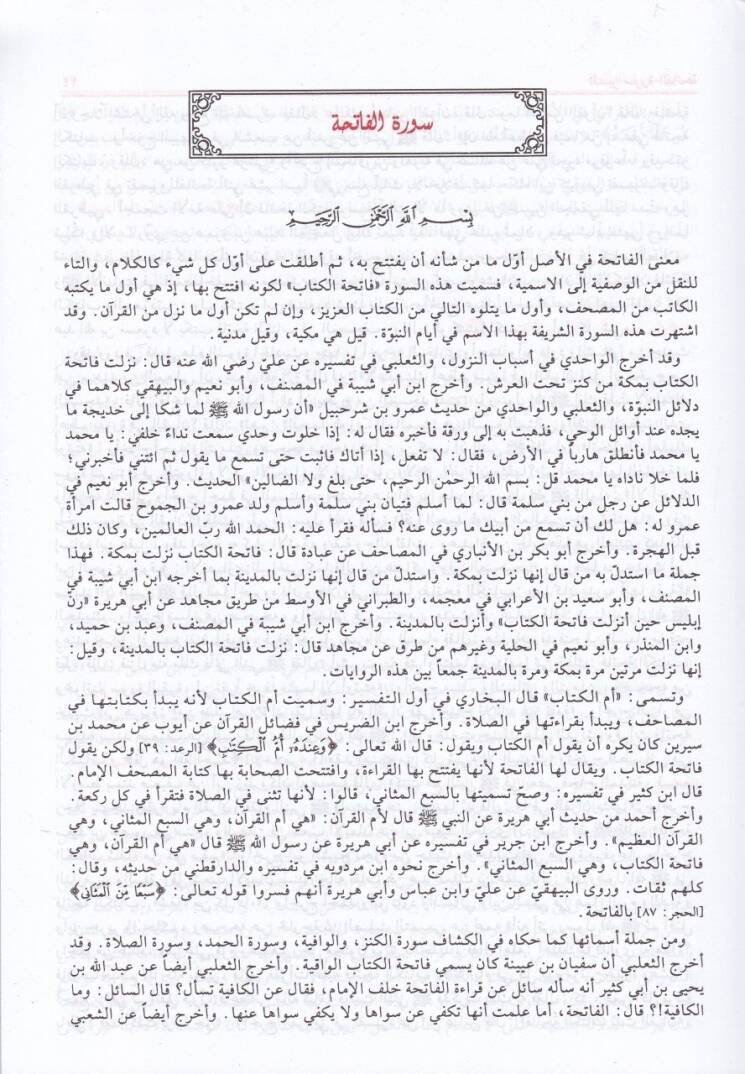 سورة الفاتحة
بِسْمِ اللَّهِ الرَّحْمَٰنِ الرَّحِيمِ
معنى الفاتحة في الأصل أوّل ما من شأنه أن يفتتح به، ثم أطلقت على أوّل كل شيء كالكلام، والتاء
للنقل من الوصفية إلى الاسمية، فسميت هذه السورة «فاتحة الكتاب» لكونه افتتح بها، إذ هي أول ما يكتبه
الكاتب من المصحف، وأول ما يتلوه التالي من الكتاب العزيز، وإن لم تكن أول ما نزل من القرآن. وقد
اشتهرت هذه السورة الشريفة بهذا الاسم في أيام النبوّة. قيل هي مكية، وقيل مدنية.
وقد أخرج الواحدي في أسباب النزول، والثعلبي في تفسيره عن عليّ رضي الله عنه قال: نزلت فاتحة
الكتاب بمكة من كنز تحت العرش. وأخرج ابن أبي شيبة في المصنف، وأبو نعيم والبيهقي كلاهما في
دلائل النبوّة، والثعلبي والواحدي من حديث عمرو بن شرحبيل «أن رسول الله ﷺ لما شكا إلى خديجة ما
يجده عند أوائل الوحي، فذهبت به إلى ورقة فأخبره فقال له: إذا خلوت وحدي سمعت نداءً خلفي: يا محمد
يا محمد فأنطلق هارباً في الأرض، فقال: لا تفعل، إذا أتاك فاثبت حتى تسمع ما يقول ثم ائتني فأخبرني؛
فلما خلا ناداه يا محمد قل: بسم الله الرحمن الرحيم، حتى بلغ ولا الضالين» الحديث. وأخرج أبو نعيم في
الدلائل عن رجل من بني سلمة قال: لما أسلم فتيان بني سلمة وأسلم ولد عمرو بن الجموح قالت امرأة
عمرو له: هل لك أن تسمع من أبيك ما روى عنه؟ فسأله فقرأ عليه: الحمد الله ربّ العالمين، وكان ذلك
قبل الهجرة. وأخرج أبو بكر بن الأنباري في المصاحف عن عبادة قال: فاتحة الكتاب نزلت بمكة. فهذا
جملة ما استدلّ به من قال إنها نزلت بمكة. واستدلّ من قال إنها نزلت بالمدينة بما أخرجه ابن أبي شيبة في
المصنف، وأبو سعيد بن الأعرابي في معجمه، والطبراني في الأوسط من طريق مجاهد عن أبي هريرة «رنّ
إبليس حين أنزلت فاتحة الكتاب» وأنزلت بالمدينة. وأخرج ابن أبي شيبة في المصنف، وعبد بن حميد،
وابن المنذر، وأبو نعيم في الحلية وغيرهم من طرق عن مجاهد قال: نزلت فاتحة الكتاب بالمدينة، وقيل:
إنها نزلت مرتين مرة بمكة ومرة بالمدينة جمعاً بين هذه الروايات.
وتسمى: «أم الكتاب» قال البخاري في أول التفسير: وسميت أم الكتاب لأنه يبدأ بكتابتها في
المصاحف، ويبدأ بقراءتها في الصلاة. وأخرج ابن الضريس في فضائل القرآن عن أيوب عن محمد بن
سيرين كان يكره أن يقول أم الكتاب ويقول: قال الله تعالى: ﴿وَعِندَهُۥٓ أُمُّ ٱلْكِتَٰبِ﴾ [الرعد: ٣٩] ولكن يقول
فاتحة الكتاب. ويقال لها الفاتحة لأنها يفتتح بها القراءة، وافتتحت الصحابة بها كتابة المصحف الإمام.
قال ابن كثير في تفسيره: وصحّ تسميتها بالسبع المثاني، قالوا: لأنها تثنى في الصلاة فتقرأ في كل ركعة.
وأخرج أحمد من حديث أبي هريرة عن النبي ﷺ قال لأم القرآن: «هي أم القرآن، وهي السبع المثاني، وهي
القرآن العظيم». وأخرج ابن جرير في تفسيره عن أبي هريرة عن رسول الله ﷺ قال «هي أم القرآن، وهي
فاتحة الكتاب، وهي السبع المثاني». وأخرج نحوه ابن مردويه في تفسيره والدارقطني من حديثه، وقال:
كلهم ثقات. وروى البيهقيّ عن عليّ وابن عباس وأبي هريرة أنهم فسروا قوله تعالى: ﴿سَبْعًا مِّنَ ٱلْمَثَانِى﴾
[الحجر: ٨٧] بالفاتحة.
ومن جملة أسمائها كما حكاه في الكشاف سورة الكنز، والوافية، وسورة الحمد، وسورة الصلاة. وقد
أخرج الثعلبي أن سفيان بن عيينة كان يسمي فاتحة الكتاب الواقية. وأخرج الثعلبي أيضاً عن عبد الله بن
يحيى بن أبي كثير أنه سأله سائل عن قراءة الفاتحة خلف الإمام، فقال عن الكافية تسأل؟ قال السائل: وما
الكافية!؟ قال: الفاتحة، أما علمت أنها تكفي عن سواها ولا يكفي سواها عنها. وأخرج أيضاً عن الشعبي